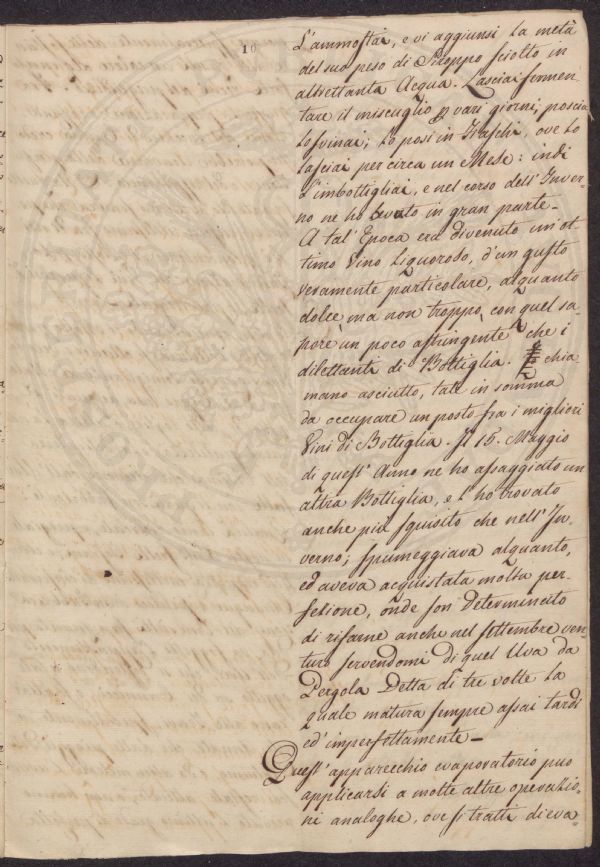 10
L'ammostai, e vi aggiunsi la metà
del suo peso di Siroppo sciolto in
altrettanta Acqua. Lasciai fermen-
tare il miscuglio p vari giorni, poscia
lo svinai; lo posi in Fiaschi, ove lo
lasciai per circa un Mese: indi
l'imbottigliai, e nel corso dell'Inver-
no ne ho bevuto in gran parte_
A tal'Epoca era divenuto un'ot-
timo Vino Liquoroso, d'un gusto
veramente particolare, alquanto
dolce ma non troppo, con quel sa-
pore un poco astringente che i
dilettanti di Bottiglia. chia-
mano asciutto, tale in somma
da occupare un posto fra i migliori
Vini di Bottiglia. Il 15. Maggio
di quest'Anno ne ho assaggiato un
altra Bottiglia, e l'ho trovato
anche più squisito che nell'In-
verno; spumeggiava alquanto,
ed aveva acquistata molta per-
fezione, onde son determinato
di rifarne anche nel settembre ven-
turo servendomi di quel Uva da
Pergola Detta di tre volte la
quale matura sempre assai tardi
ed'imperfettamente_
Quest'apparecchio evaporatorio può
applicarsi a molte altre operazio-
ni analoghe, ove si tratti di eva-